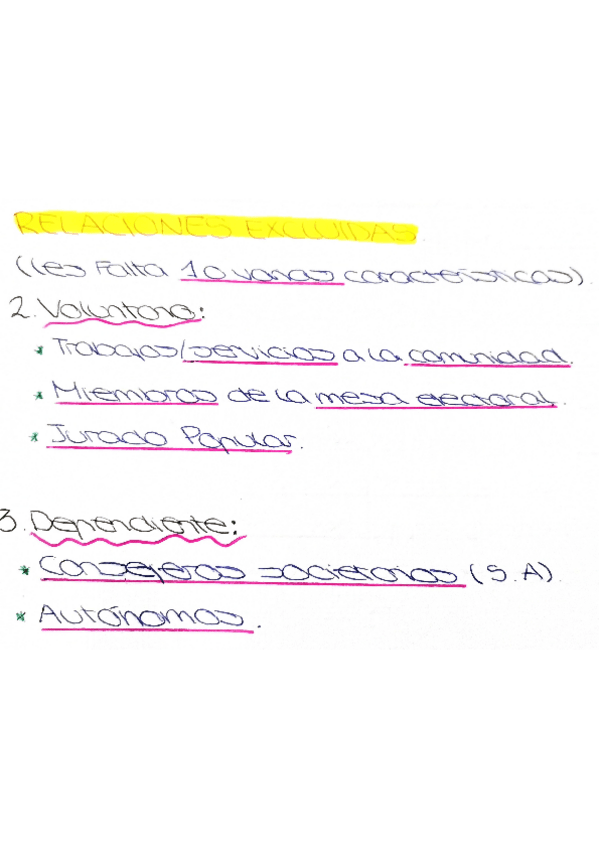 RELACIONES EXCLUIDAS.
(les Falta 1 o varias características)
2. Voluntaria:
* Trabajos/servicios a la comunidad.
* Miembros de la mesa electoral.
* Jurado Popular.
3. Dependiente:
* Consejeros societarios (S.A).
* Autónomos.